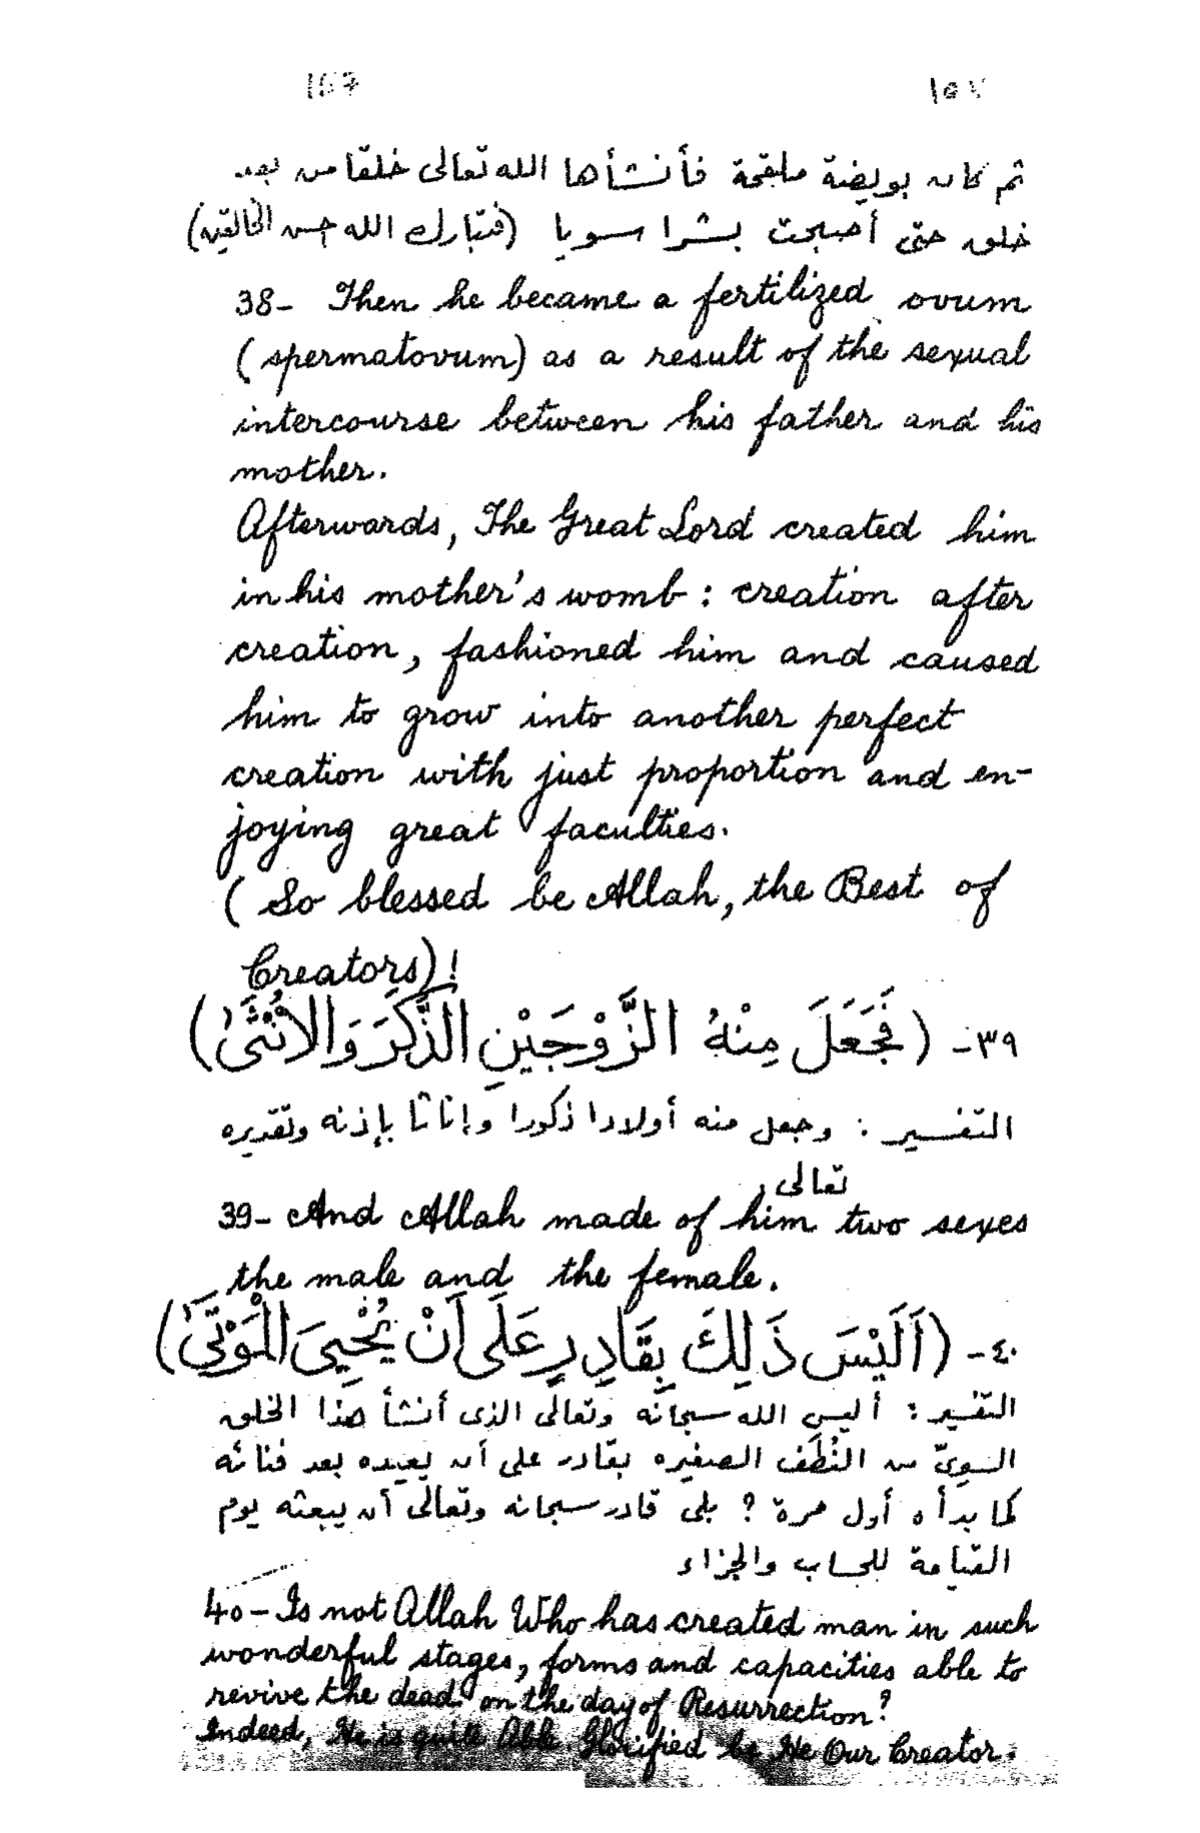 157 ١٥٧
ثم كان بويضة ملقحة فأنشأها الله تعالى خلقا من بعد
خلق حتى أصبحت بشرا سويا (فتبارك الله حسن الخالقين)
38- Then he became a fertilized ovum
(spermatovum) as a result of the sexual
intercourse between his father and his
mother.
Afterwards, The Great Lord created him
in his mother's womb : creation after
creation, fashioned him and caused
him to grow into another perfect
creation with just proportion and en-
joying great faculties.
( So blessed be Allah, the Best of
Creators)!
٣٩- (فَجَعَلَ مِنْهُ الزَّوْجَيْنِ الذَّكَرَ وَالاُنْثَىٰ)
التفسير : وجعل منه أولادا ذكورا وإناثا بإذنه وتقديره
تعالى
39- And Allah made of him two sexes
the male and the female.
٤٠- (اَلَيْسَ ذَلِكَ بِقَادِرٍ عَلَى اَنْ يُحْيِيَ الْمَوْتَىٰ)
التفسير : أليس الله سبحانه وتعالى الذى أنشأ هذا الخلق
السوىّ من النُطَف الصغيره بقادر على أن يعيده بعد فنائه
كما بدأه أول مرة ؟ بلى قادر سبحانه وتعالى أن يبعثه يوم
القيامة للحساب والجزاء
40- Is not Allah Who has created man in such
wonderful stages, forms and capacities able to
revive the dead on the day of Resurrection?
Indeed, He is quite Able Glorified be He Our Creator.